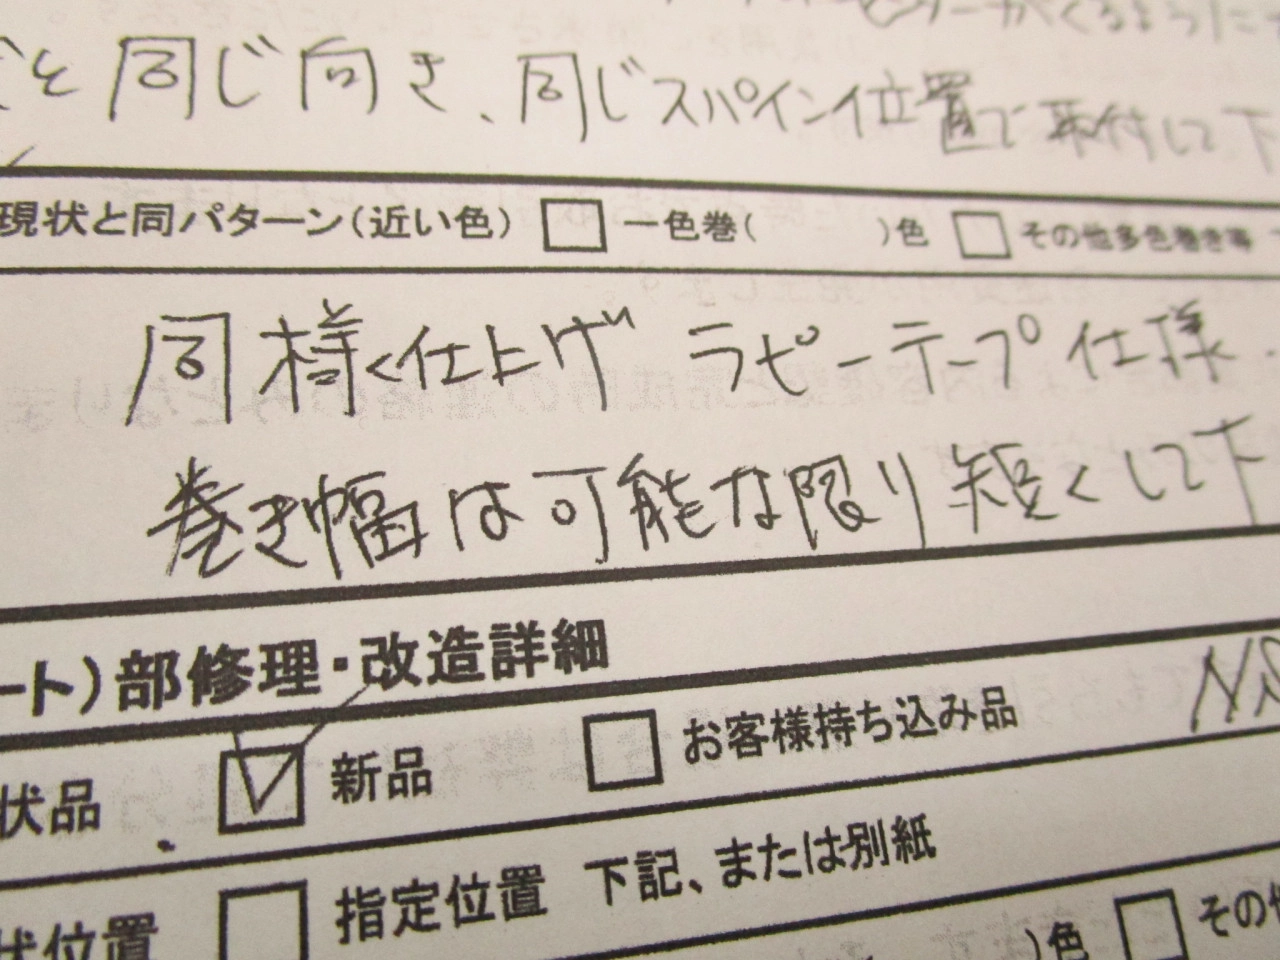 くるように
と同じ向き、同じスパイン位置で取付して下
現状と同パターン(近い色) □ 一色巻( )色 □ その他多色巻き等
同様く仕上げ ラピーテープ仕様.
巻き幅は可能な限り短くして下
ート)部修理・改造詳細
状品 ☑ 新品 □ お客様持ち込み品
状位置 □ 指定位置 下記、または別紙
)色 □ その他